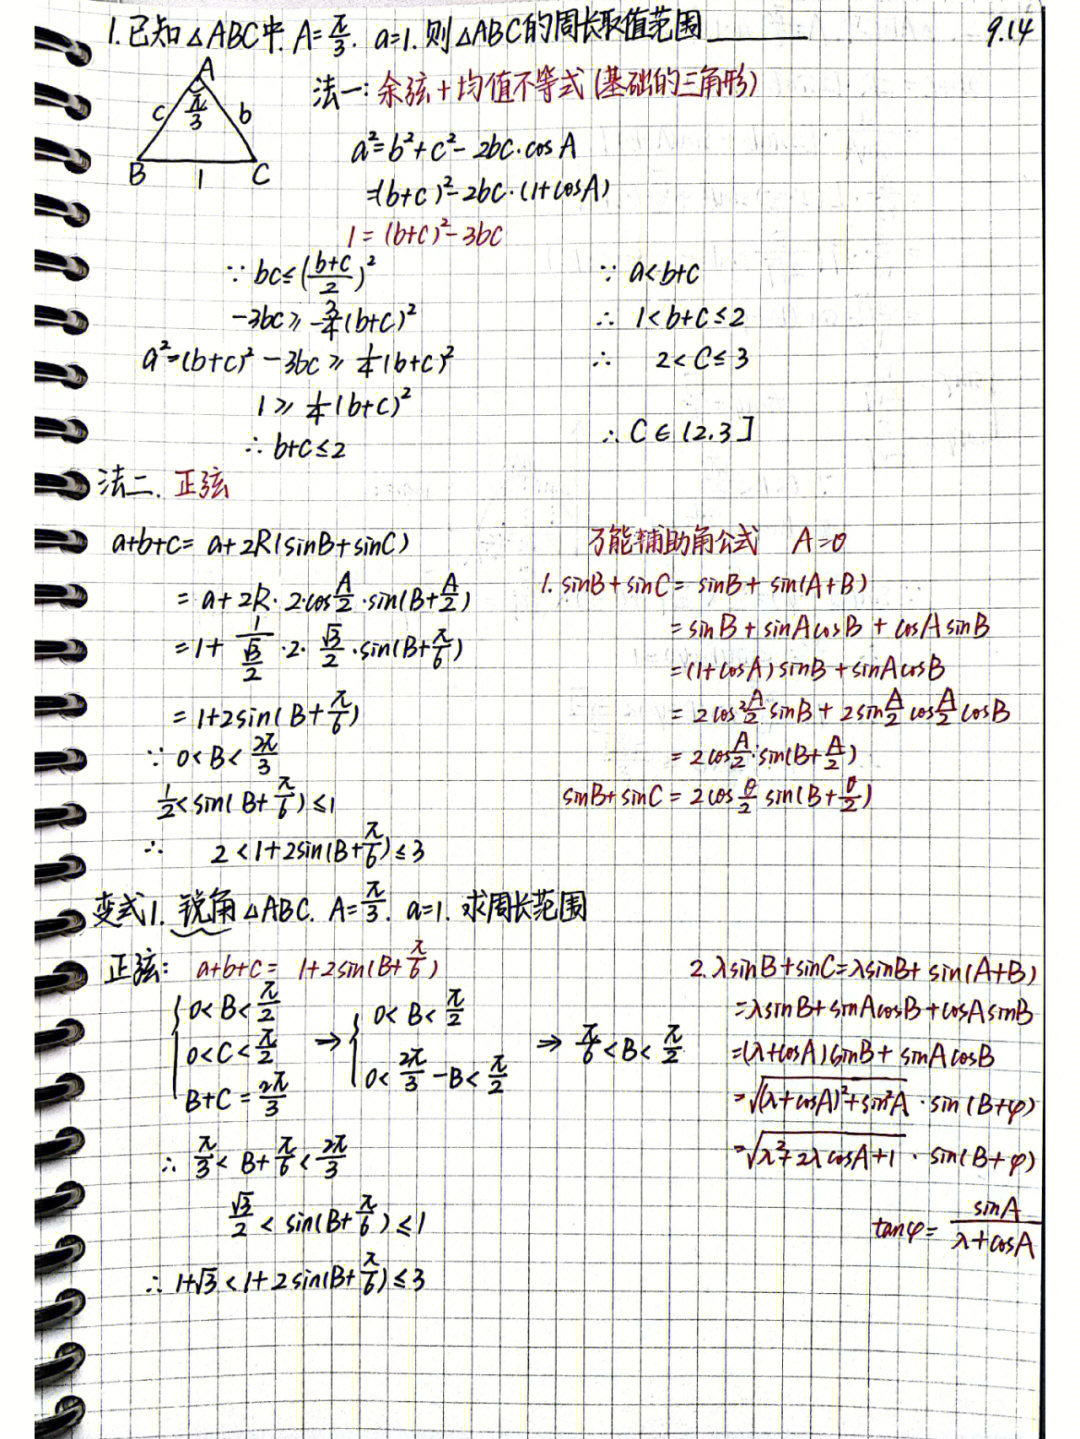 1.已知△ABC中. A=π/3. a=1. 则△ABC的周长取值范围______
9.14
A
c π/3 b
B 1 C
法一: 余弦+均值不等式(基础的三角形)
a²=b²+c²-2bc·cosA
=(b+c)²-2bc·(1+cosA)
1=(b+c)²-3bc
∵ bc≤((b+c)/2)²
-3bc≥-3/4(b+c)²
a²=(b+c)²-3bc≥1/4(b+c)²
1≥1/4(b+c)²
∴ b+c≤2
∵ a<b+c
∴ 1<b+c≤2
∴ 2<C≤3
∴ C∈(2.3]
法二. 正弦
a+b+c= a+2R(sinB+sinC)
= a+2R·2·cos A/2·sin(B+A/2)
=1+ 1/(√3/2)·2·√3/2·sin(B+π/6)
=1+2sin(B+π/6)
∵ 0<B<2π/3
1/2<sin(B+π/6)≤1
∴ 2<1+2sin(B+π/6)≤3
万能辅助角公式 A=θ
1. sinB+sinC= sinB+ sin(A+B)
=sinB+sinAcosB+cosAsinB
=(1+cosA)sinB+sinAcosB
=2cos²A/2 sinB+2sinA/2 cosA/2 cosB
=2cosA/2·sin(B+A/2)
sinB+sinC=2cosθ/2 sin(B+θ/2)
变式1. 锐角△ABC. A=π/3. a=1. 求周长范围
正弦: a+b+c= 1+2sin(B+π/6)
{0<B<π/2
0<C<π/2
B+C=2π/3
⇒ {0<B<π/2
0<2π/3-B<π/2
⇒ π/6<B<π/2
∴ π/3<B+π/6<2π/3
√3/2<sin(B+π/6)≤1
∴ 1+√3<1+2sin(B+π/6)≤3
2.λsinB+sinC=λsinB+sin(A+B)
=λsinB+sinAcosB+cosAsinB
=(λ+cosA)sinB+sinAcosB
=√((λ+cosA)²+sin²A)·sin(B+φ)
=√(λ²+2λcosA+1)·sin(B+φ)
tanφ=sinA/(λ+cosA)